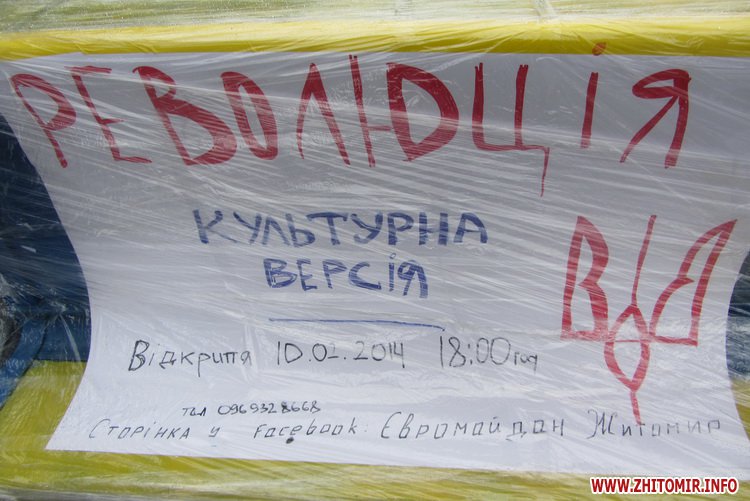 РЕВОЛЮЦІЯ
КУЛЬТУРНА
ВЕРСІЯ
Відкриття 10.02.2014 18:00 год
тел 0969328668
Сторінка у facebook: Євромайдан Житомир
WWW.ZHITOMIR.INFO